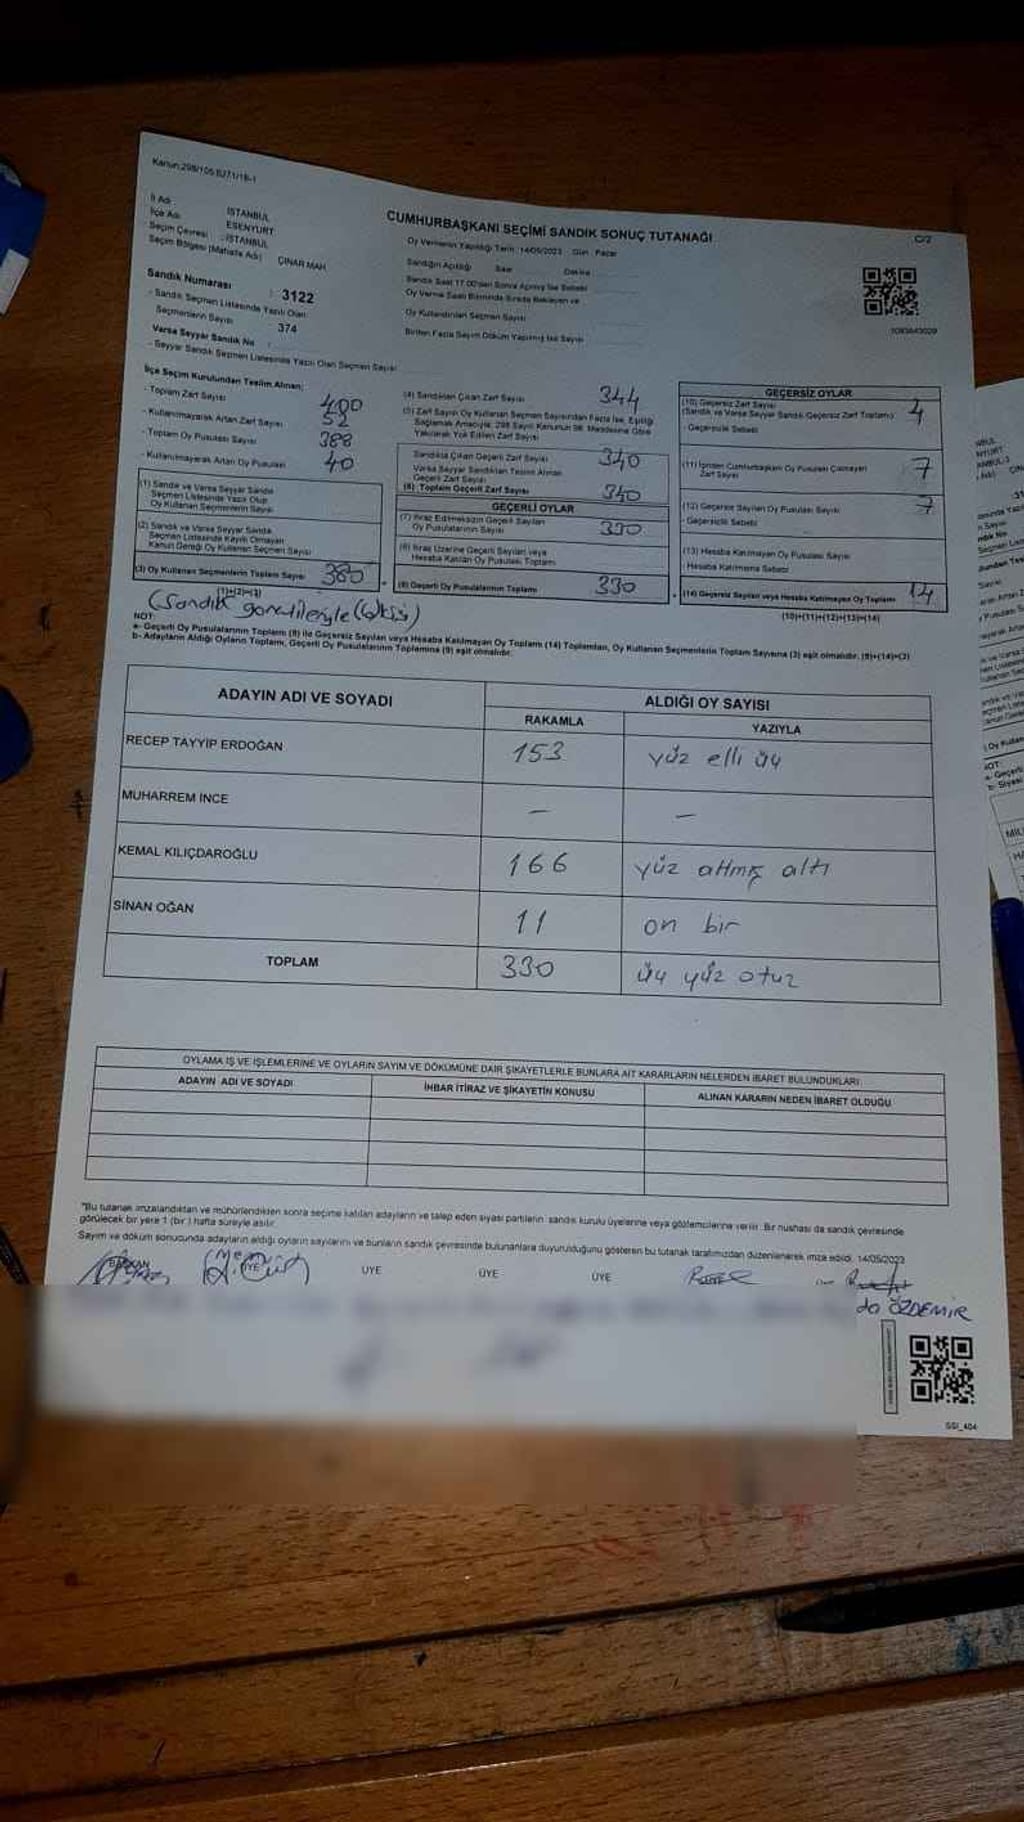 Kanun:298/105
İl Adı : İSTANBUL
İlçe Adı : ESENYURT
Seçim Çevresi : İSTANBUL
Seçim Bölgesi (Mahalle Adı) : ÇINAR MAH
CUMHURBAŞKANI SEÇİMİ SANDIK SONUÇ TUTANAĞI
C/2
Oy Vermenin Yapıldığı Tarih: 14/05/2023 Gün: Pazar
Sandığın Açıldığı Saat Dakika
Sandık Saat 17.00'den Sonra Açılmış İse Sebebi
Oy Verme Saati Bitiminde Sırada Bekleyen ve
Oy Kullandırılan Seçmen Sayısı
Birden Fazla Sayım Döküm Yapılmış İse Sayısı
Sandık Numarası : 3122
- Sandık Seçmen Listesinde Yazılı Olan
Seçmenlerin Sayısı : 374
Varsa Seyyar Sandık No :
- Seyyar Sandık Seçmen Listesinde Yazılı Olan Seçmen Sayısı
İlçe Seçim Kurulundan Teslim Alınan:
- Toplam Zarf Sayısı 400
- Kullanılmayarak Artan Zarf Sayısı 52
- Toplam Oy Pusulası Sayısı 388
- Kullanılmayarak Artan Oy Pusulası 40
(1) Sandık ve Varsa Seyyar Sandık
Seçmen Listesinde Yazılı Olup
Oy Kullanan Seçmenlerin Sayısı
(2) Sandık ve Varsa Seyyar Sandık
Seçmen Listesinde Kayıtlı Olmayan
Kanun Gereği Oy Kullanan Seçmen Sayısı
(3) Oy Kullanan Seçmenlerin Toplam Sayısı
(1)+(2)=(3)
(4) Sandıktan Çıkan Zarf Sayısı 344
(5) Zarf Sayısı Oy Kullanan Seçmen Sayısından Fazla İse, Eşitliği
Sağlamak Amacıyla, 298 Sayılı Kanunun 98. Maddesine Göre
Yakılarak Yok Edilen Zarf Sayısı
Sandıkta Çıkan Geçerli Zarf Sayısı 340
Varsa Seyyar Sandıktan Teslim Alınan
Geçerli Zarf Sayısı
(6) Toplam Geçerli Zarf Sayısı 340
GEÇERLİ OYLAR
(7) İtiraz Edilmeksizin Geçerli Sayılan
Oy Pusulalarının Sayısı 330
(8) İtiraz Üzerine Geçerli Sayılan veya
Hesaba Katılan Oy Pusulası Toplamı
(9) Geçerli Oy Pusulalarının Toplamı 330
GEÇERSİZ OYLAR
(10) Geçersiz Zarf Sayısı 4
(Sandık ve Varsa Seyyar Sandık Geçersiz Zarf Toplamı)
- Geçersizlik Sebebi
(11) İçinden Cumhurbaşkanı Oy Pusulası Çıkmayan
Zarf Sayısı 7
(12) Geçersiz Sayılan Oy Pusulası Sayısı 7
- Geçersizlik Sebebi
(13) Hesaba Katılmayan Oy Pusulası Sayısı
- Hesaba Katılmama Sebebi
(14) Geçersiz Sayılan veya Hesaba Katılmayan Oy Toplamı 14
(10)+(11)+(12)+(13)=(14)
NOT:
a- Geçerli Oy Pusulalarının Toplamı (9) ile Geçersiz Sayılan veya Hesaba Katılmayan Oy Toplamı (14) Toplamları, Oy Kullanan Seçmenlerin Toplam Sayısına (3) eşit olmalıdır. (9)+(14)=(3)
b- Adayların Aldığı Oyların Toplamı, Geçerli Oy Pusulalarının Toplamına (9) eşit olmalıdır.
ADAYIN ADI VE SOYADI
ALDIĞI OY SAYISI
RAKAMLA YAZIYLA
RECEP TAYYİP ERDOĞAN 153 yüz elli üç
MUHARREM İNCE - -
KEMAL KILIÇDAROĞLU 166 yüz altmış altı
SİNAN OĞAN 11 on bir
TOPLAM 330 üç yüz otuz
OYLAMA İŞ VE İŞLEMLERİNE VE OYLARIN SAYIM VE DÖKÜMÜNE DAİR ŞİKAYETLERLE BUNLARA AİT KARARLARIN NELERDEN İBARET BULUNDUKLARI
ADAYIN ADI VE SOYADI
İHBAR İTİRAZ VE ŞİKAYETİN KONUSU
ALINAN KARARIN NEDEN İBARET OLDUĞU
"Bu tutanak imzalandıktan ve mühürlendikten sonra seçime katılan adayların ve talep eden siyasi partilerin sandık kurulu üyelerine veya gözlemcilerine verilir. Bir nushası da sandık çevresinde
görülecek bir yere 1 (bir) hafta süreyle asılır.
Sayım ve döküm sonucunda adayların aldığı oyların sayılarını ve bunların sandık çevresinde bulunanlara duyurulduğunu gösteren bu tutanak tarafımızdan düzenlenerek imza edildi. 14/05/2023
BAŞKAN ÜYE ÜYE ÜYE ÜYE
ÖZDEMİR